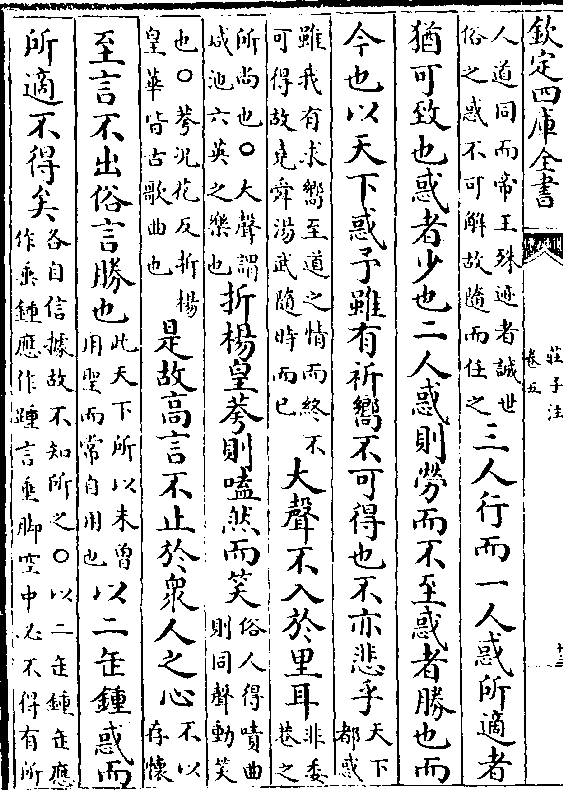 欽定四庫全書
莊子注
卷五
人道同而帝王殊迹者誠世
俗之惑不可解故隨而任之
三人行而一人惑所適者
猶可致也惑者少也二人惑則勞而不至惑者勝也而
今也以天下惑予雖有祈嚮不可得也不亦悲乎
天下
都惑
雖我有求嚮至道之情而終不
可得故堯舜湯武隨時而已
大聲不入於里耳
非委
巷之
所尚也○大聲謂
咸池六英之樂也
折楊皇荂則嗑然而笑
俗人得嘖曲
則同聲動笑
也○荂况花反折楊
皇華皆古歌曲也
是故高言不止於衆人之心
不以
存懷
至言不出俗言勝也
此天下所以未曾
用聖而常自用也
以二缶鍾惑而
所適不得矣
各自信據故不知所之○以二缶鍾缶應
作垂鍾應作踵言垂脚空中必不得有所